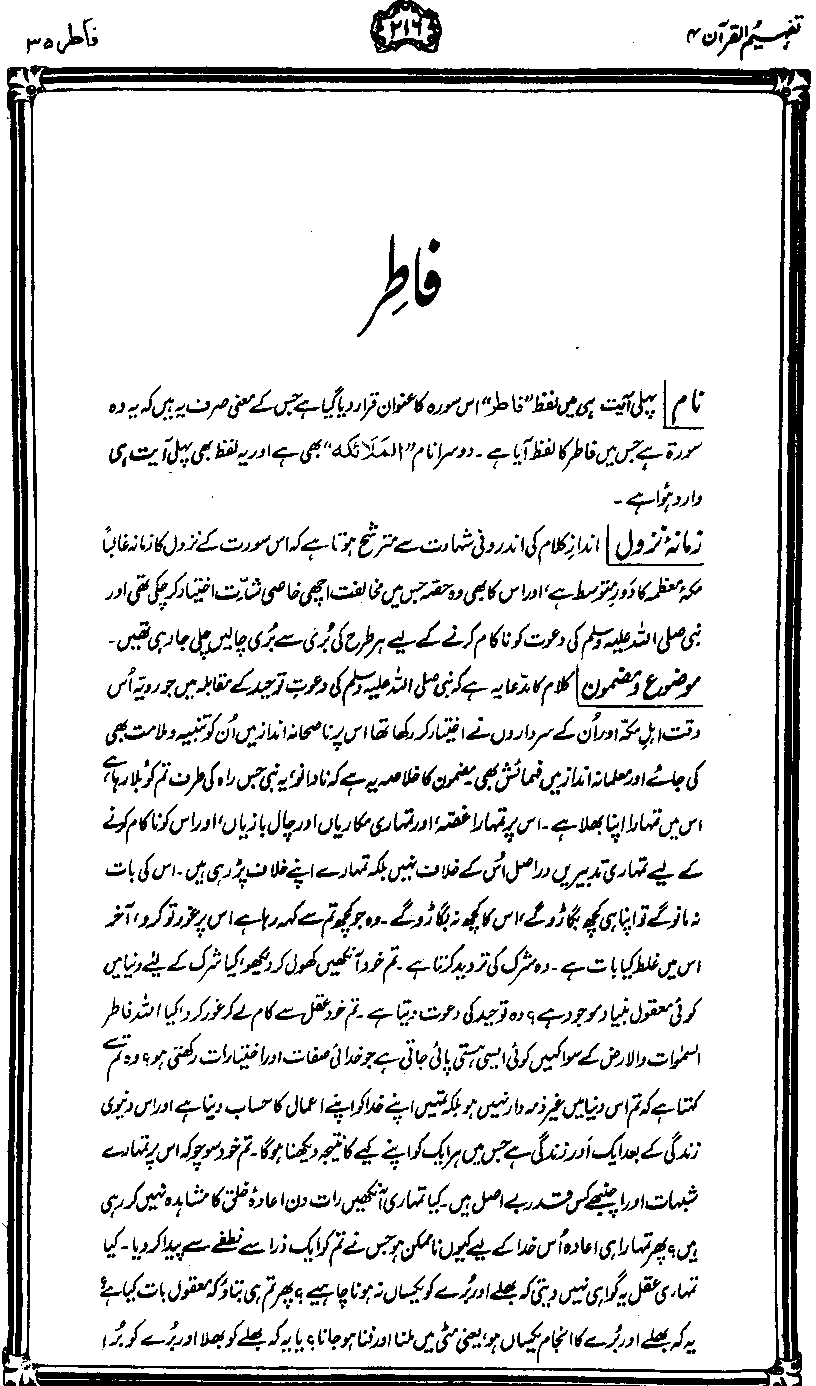 تفہیم القرآن ۴
۲۱۶
فاطر ۳۵
فاطِر
نام پہلی آیت ہی میں لفظ "فاطر" اس سورہ کا عنوان قرار دیا گیا ہے جس کے معنی صرف یہ ہیں کہ یہ وہ
سورۃ ہے جس میں فاطر کا لفظ آیا ہے ۔ دوسرا نام "المَلَائکہ" بھی ہے اور یہ لفظ بھی پہلی آیت ہی
وارد ہُوا ہے ۔
زمانۂ نزول اندازِ کلام کی اندرونی شہادت سے مترشح ہوتا ہے کہ اس سورت کے نزول کا زمانہ غالباً
مکۂ معظمہ کا دَورِ متوسط ہے، اور اس کا بھی وہ حصّہ جس میں مخالفت اچھی خاصی شدّت اختیار کر چکی تھی اور
نبی صلی اللہ علیہ وسلم کی دعوت کو ناکام کرنے کے لیے ہر طرح کی بُری سے بُری چالیں چلی جا رہی تھیں۔
موضوع و مضمون کلام کا مدّعا یہ ہے کہ نبی صلی اللہ علیہ وسلم کی دعوتِ توحید کے مقابلہ میں جو رویّہ اُس
وقت اہلِ مکّہ اور اُن کے سرداروں نے اختیار کر رکھا تھا اس پر ناصحانہ انداز میں اُن کو تنبیہ و ملامت بھی
کی جائے اور معلمانہ انداز میں فہمائش بھی۔ مضمون کا خلاصہ یہ ہے کہ نادانو، یہ نبی جس راہ کی طرف تم کو بلا رہا ہے،
اس میں تمہارا اپنا بھلا ہے ۔ اس پر تمہارا غصّہ، اور تمہاری مکاریاں اور چال بازیاں، اور اس کو ناکام کرنے
کے لیے تمہاری تدبیریں دراصل اُس کے خلاف نہیں بلکہ تمہارے اپنے خلاف پڑ رہی ہیں ۔ اس کی بات
نہ مانو گے تو اپنا ہی کچھ بگاڑو گے، اس کا کچھ نہ بگاڑو گے ۔ وہ جو کچھ تم سے کہہ رہا ہے اس پر غور تو کرو، آخر
اس میں غلط کیا بات ہے ۔ وہ شرک کی تردید کرتا ہے ۔ تم خود آنکھیں کھول کر دیکھو، کیا شرک کے لیے دنیا میں
کوئی معقول بنیاد موجود ہے؟ وہ توحید کی دعوت دیتا ہے ۔ تم خود عقل سے کام لے کر غور کرو، کیا اللہ فاطر
السمٰوات والارض کے سوا کہیں کوئی ایسی ہستی پائی جاتی ہے جو خدائی صفات اور اختیارات رکھتی ہو؟ وہ تم سے
کہتا ہے کہ تم اس دنیا میں غیر ذمہ دار نہیں ہو بلکہ تمہیں اپنے خدا کو اپنے اعمال کا حساب دینا ہے اور اس دنیوی
زندگی کے بعد ایک اَور زندگی ہے جس میں ہر ایک کو اپنے کیے کا نتیجہ دیکھنا ہوگا۔ تم خود سوچو کہ اس پر تمہارے
شبہات اور اچنبھے کس قدر بے اصل ہیں۔ کیا تمہاری آنکھیں رات دن اعادۂ خلق کا مشاہدہ نہیں کر رہی
ہیں؟ پھر تمہارا ہی اعادہ اُس خدا کے لیے کیوں ناممکن ہو جس نے تم کو ایک ذرا سے نطفے سے پیدا کر دیا۔ کیا
تمہاری عقل یہ گواہی نہیں دیتی کہ بھلے اور بُرے کو یکساں نہ ہونا چاہیے؟ پھر تم ہی بتاؤ کہ معقول بات کیا ہے؟
یہ کہ بھلے اور بُرے کا انجام یکساں ہو، یعنی مٹی میں ملنا اور فنا ہو جانا؟ یا یہ کہ بھلے کو بھلا اور بُرے کو بُرا